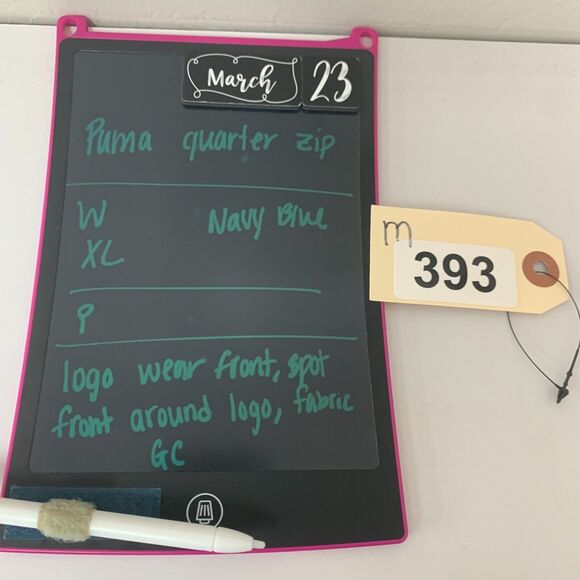 March 23
Puma quarter zip
W Navy Blue
XL
P
logo wear front, spot
front around logo, fabric
GC
m
393